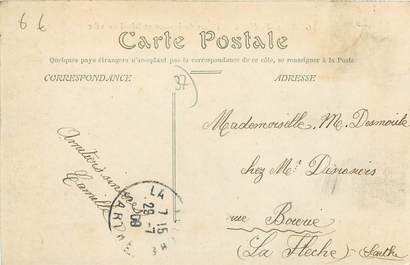 6 6
Carte Postale
Quelques pays étrangers n'acceptant pas la correspondance de ce côté, se renseigner à la Poste
CORRESPONDANCE
37
ADRESSE
Mademoiselle M. Desmoule
chez Mr
rue
(La Fleche) Sarthe
Amitiés sincères
Camille
LA
7 15
28 -7
09
SARTHE